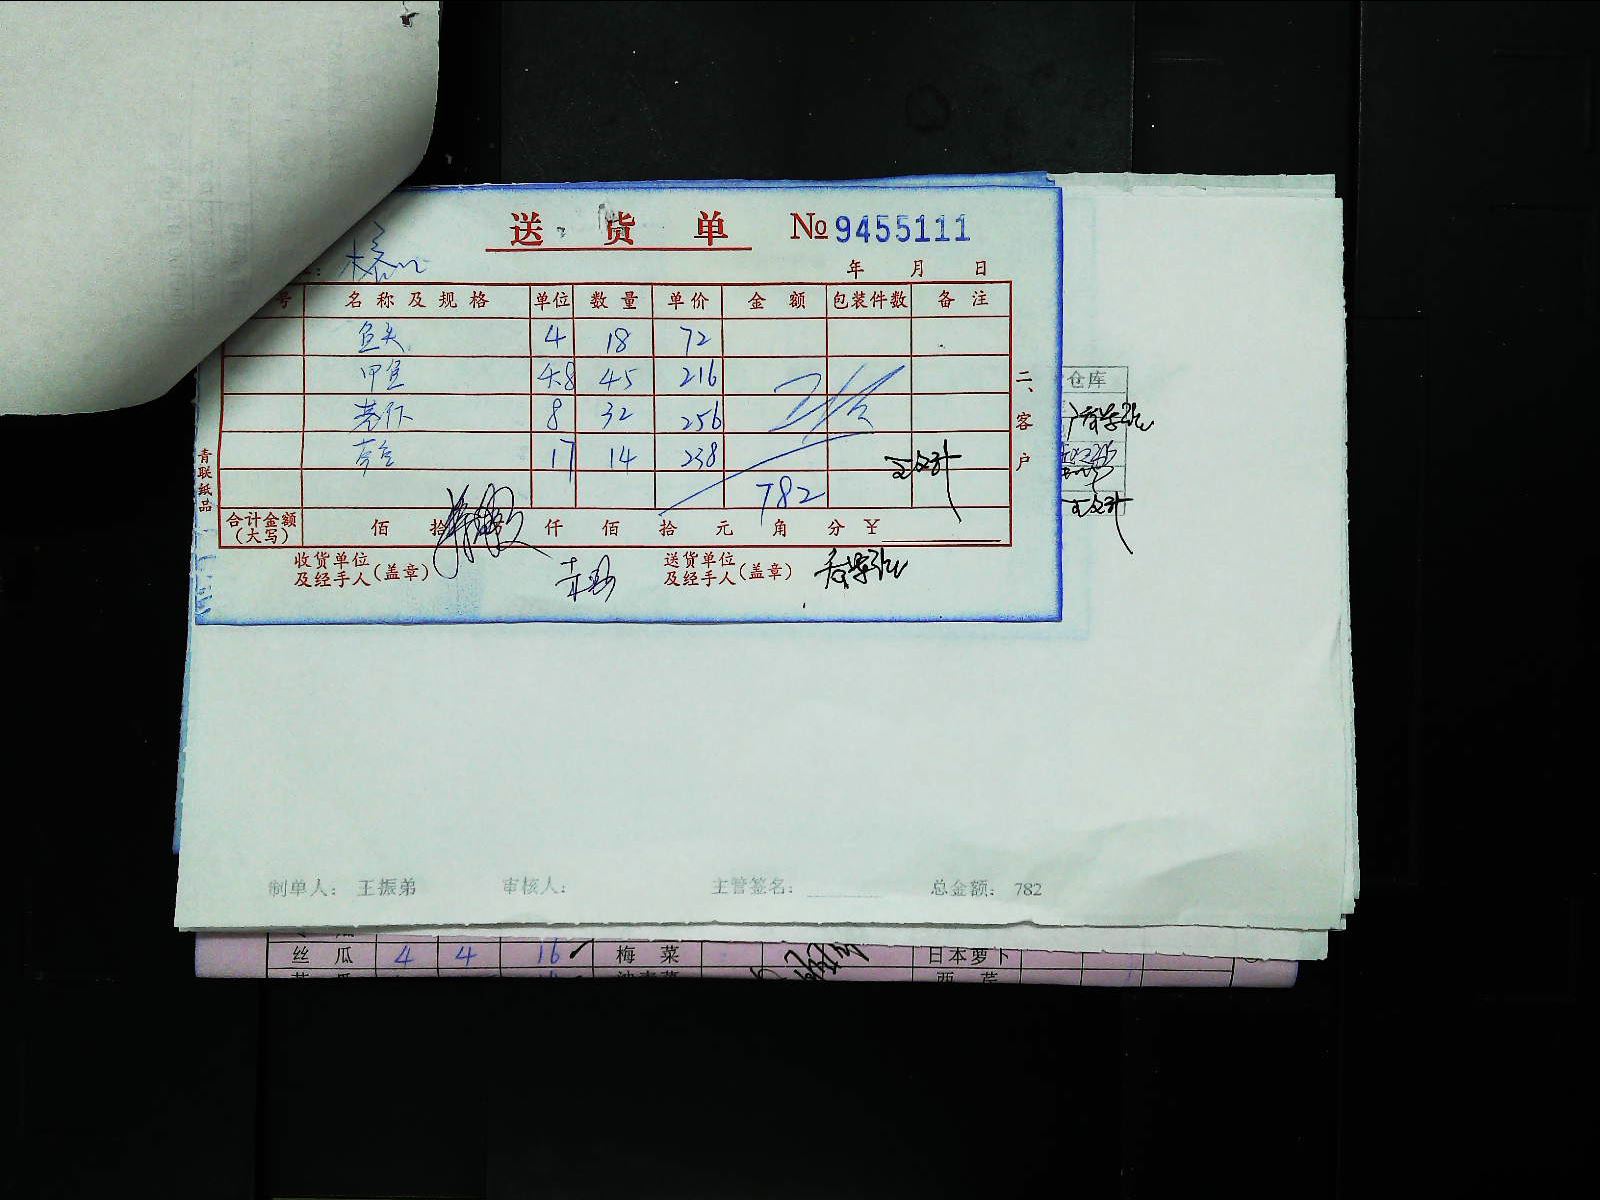 送 货 单 №9455111
年 月 日
号 名称及规格 单位 数量 单价 金额 包装件数 备注
鱼头 4 18 72
甲鱼 4.8 45 216
8 32 256
17 14 238
782
合计金额（大写） 佰 拾 仟 佰 拾 元 角 分 ¥
收货单位及经手人(盖章) 送货单位及经手人(盖章)
二、客户
青联纸品
仓库
制单人： 王振弟 审核人： 主管签名： 总金额： 782
丝瓜 4 4 16 梅菜 日本萝卜
西芹